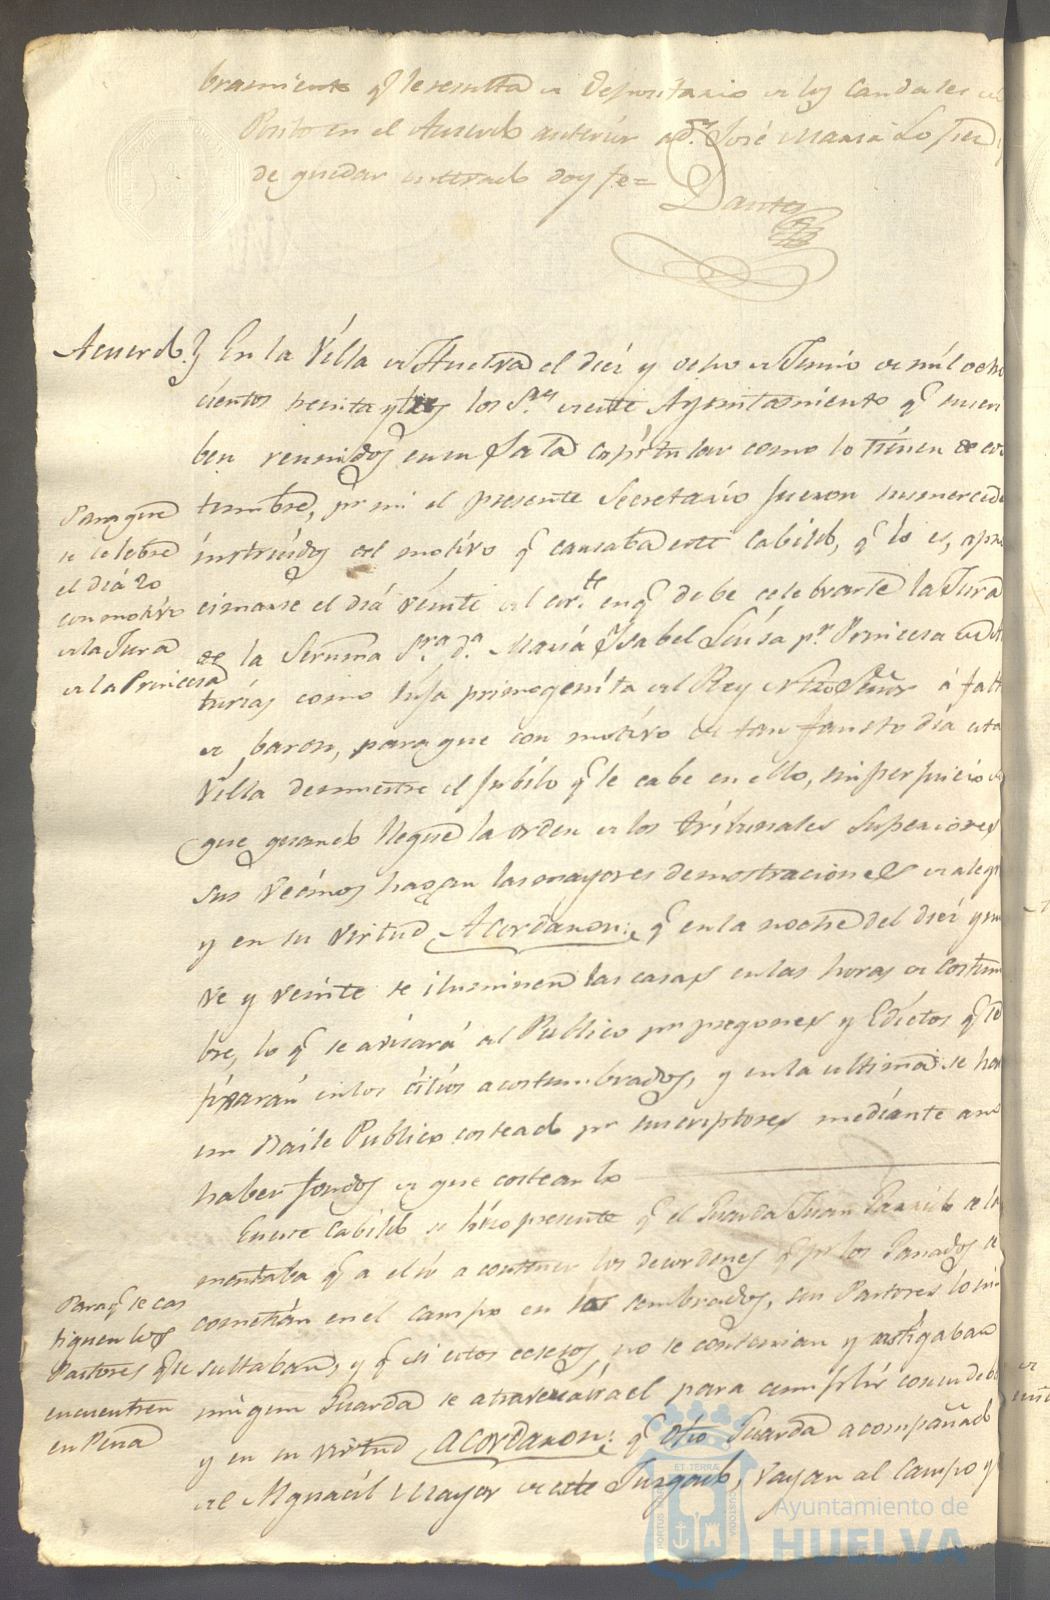 bramiento q.e le resulta de Depositario de los caudales del
Posito en el Acuerdo anterior a D.n José Maria Lopez
de quedar enterado doy fe =
Dante
Acuerdo.} En la Villa de Huelva el diez y ocho de Junio de mil ocho
cientos treinta y tres los S.res de este Ayuntamiento q.e suscri
ben reunidos en su Sala capitular como lo tienen de cos
tumbre, p.r mi el presente Secretario fueron sus mercedes
instruidos del motivo q.e causaba este Cabildo, q.e lo es, aprо
cimarse el dia veinte del cor.te en q.e debe celebrarse la Jura
de la Serenma S.ra D.a Maria Ysabel Luisa p.r Princesa de As
turias como hija primogenita del Rey Ntro Señor á falta
de baron, para que con motivo de tan fausto dia esta
Villa demuestre el jubilo q.e le cabe en ello, sin perjuicio de
que quando llegue la orden de los tribunales Superiores
sus vecinos hagan las mayores demostraciones de alegr
y en su virtud Acordaron: q.e en la noche del diez y nue
ve y veinte se iluminen las casas en las horas de costum
bre, lo q.e se avisará al Publico p.r pregones y Edictos q.e se
fixarán en los citios acostumbrados, y en la ultima se hará
un Baile Publico costeado p.r suscriptores mediante a no
haber fondos de que costearlo
En este Cabildo se hizo presente q.e el Guarda Juan Garrido se la
mentaba q.e a el ir a contener los desordenes q.e p.r los Ganados se
cometian en el campo en los sembrados, sus Pastores lo in
sultaban, y q.e si estos ecsesos no se contenian y castigaban
ningun Guarda se atraveria él para cumplir con su deber
y en su virtud Acordaron: q.e otro Guarda acompañado
del Alguacil Mayor de este Juzgado, vayan al campo y
Para que
se celebre
el dia 20
con motivo
de la Jura
de la Princesa
Para q.e se cas
tiguen los
Pastores que
encuentren
en Pena
PORTUS
ET TERRAE
CUSTODIA
Ayuntamiento de
HUELVA